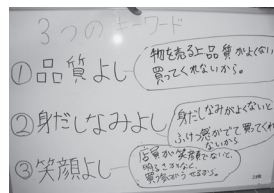 3つのキーワード
①品質よし
物を売る上品質がよくないと
買ってくれないから。
②身だしなみよし
身だしなみがよくないと
ふけつ感がでて買ってくれ
ないから
③笑顔よし
店員が笑顔でないと、
明るさがなく、
買う気がうせるから。